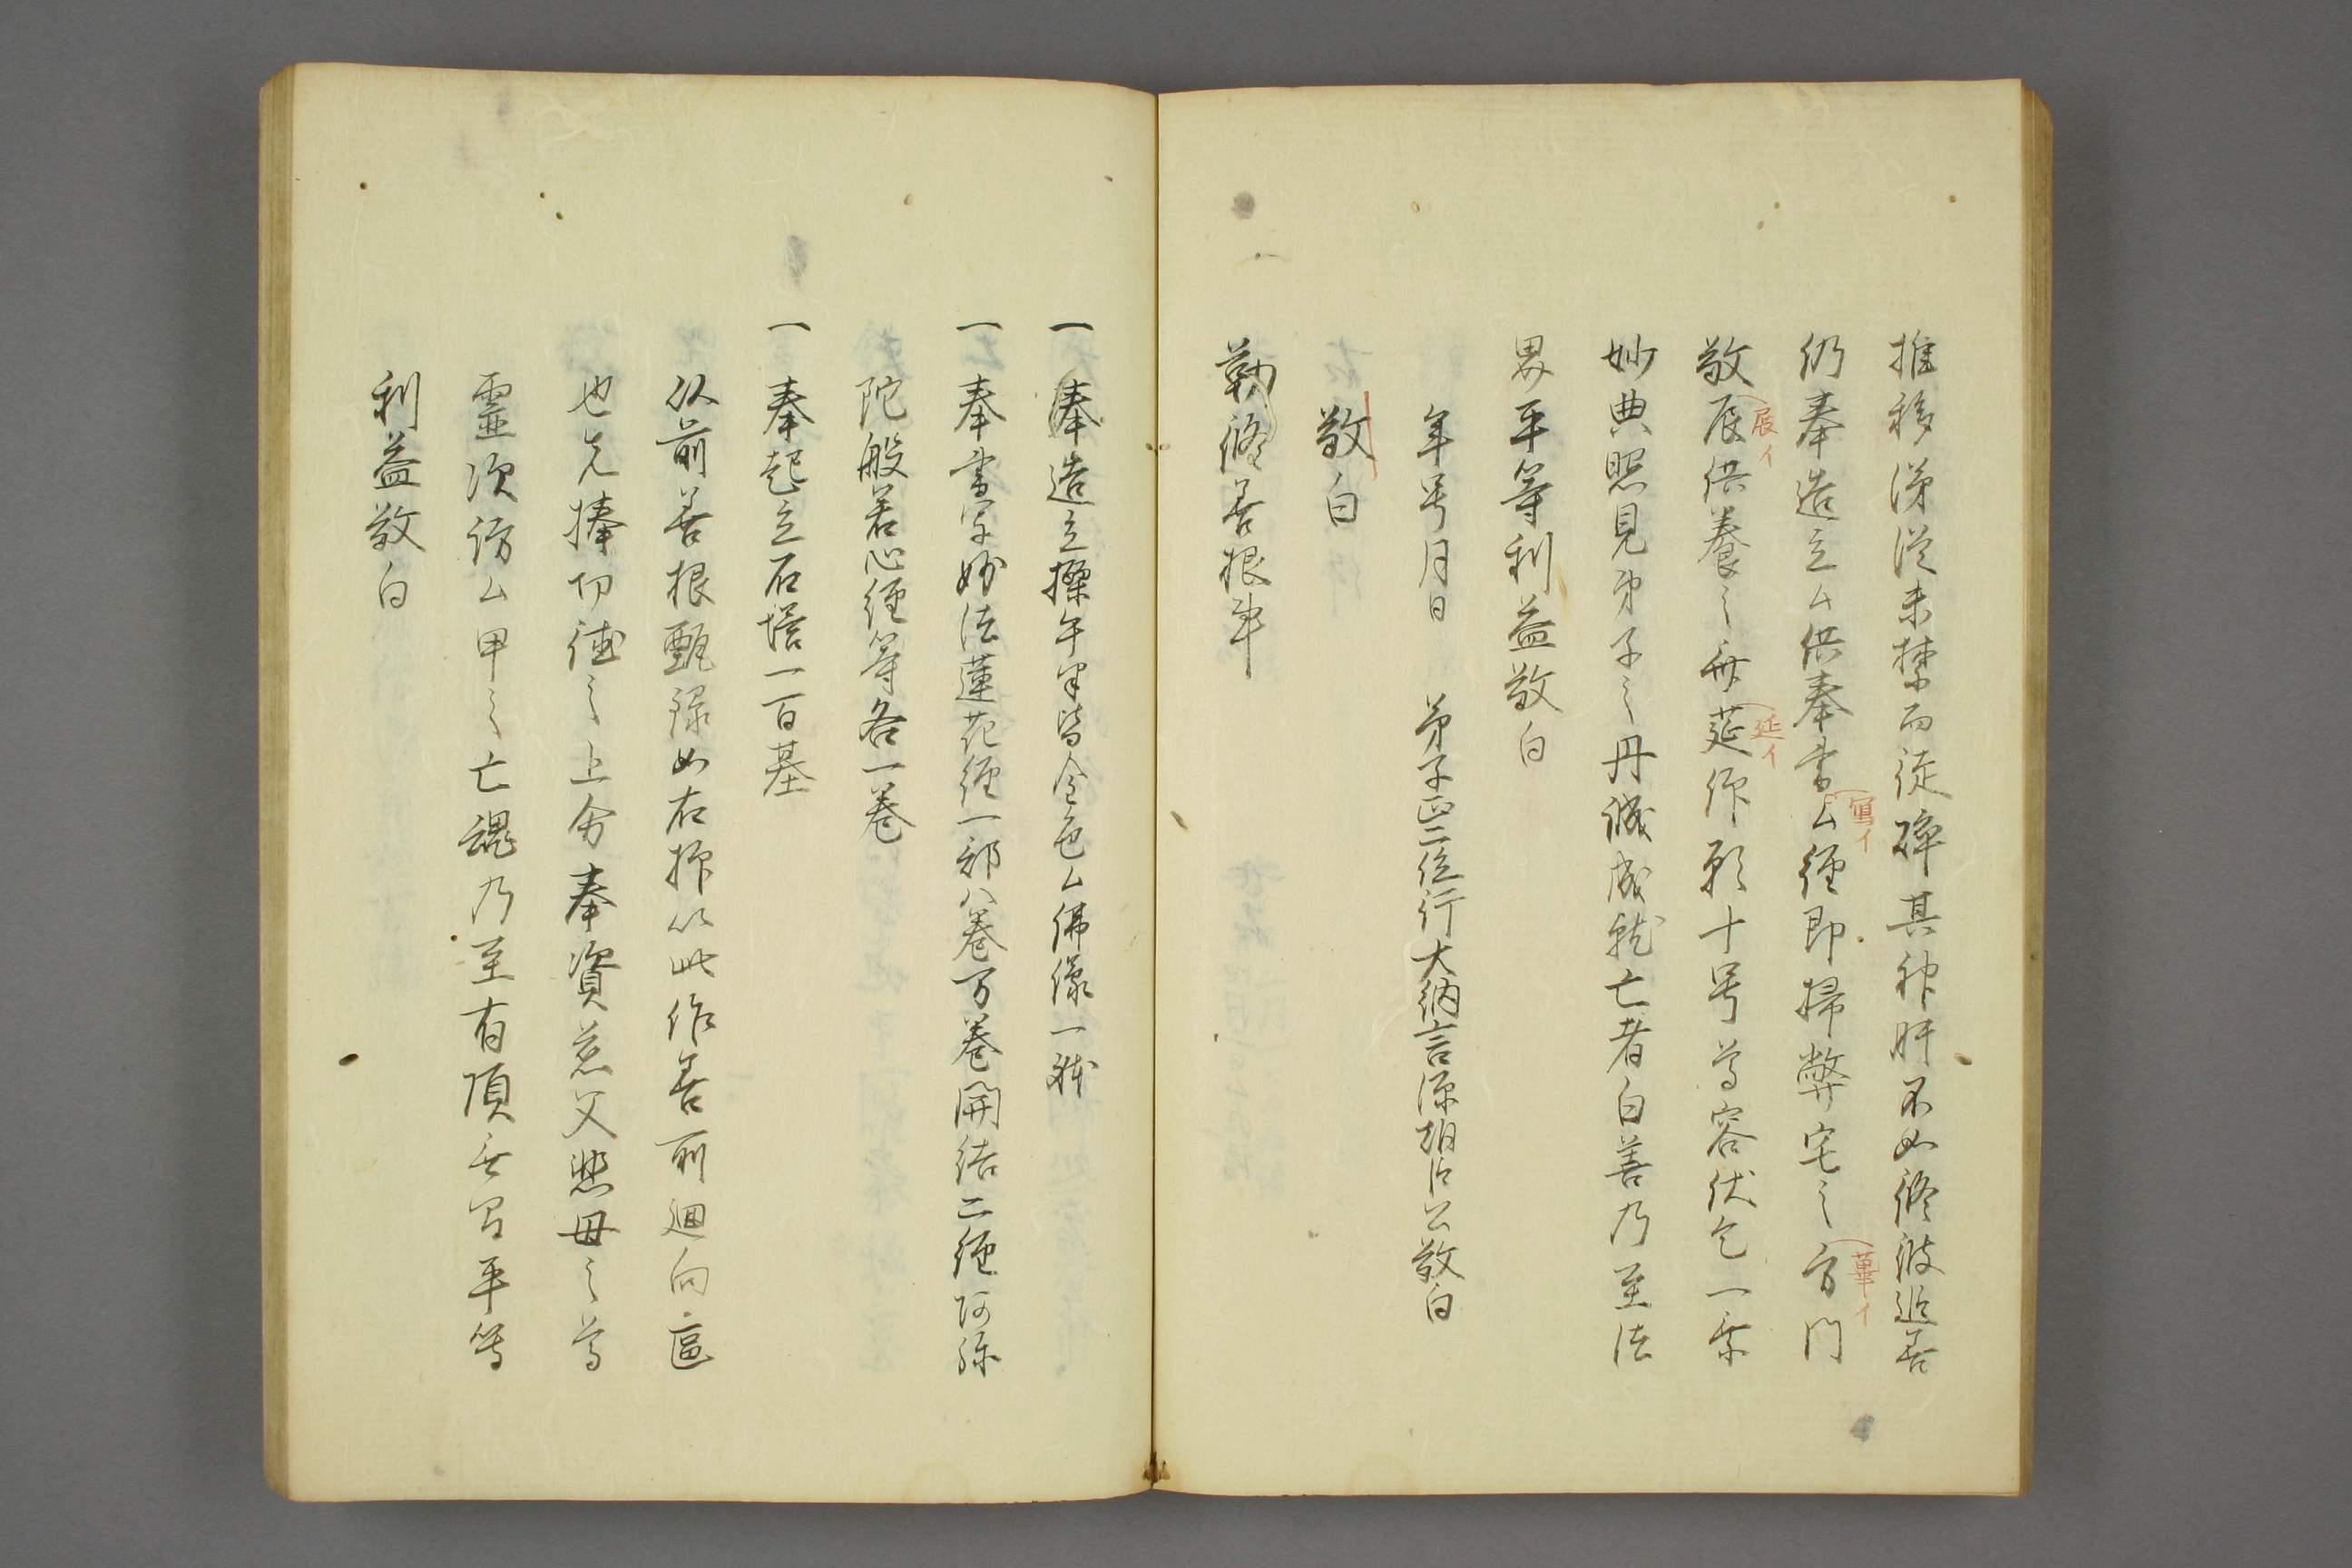 推移涕涙未禁而徒砕其神肝不如修彼追善
仍奉造立ム供奉書ム経即掃弊宅之方門
寫イ
華イ
敬辰供養之毎莚仰願十号尊容伏乞一乗
展イ
延イ
妙典照見弟子之丹誠成就亡者白善乃至法
界平等利益敬白
年号月日 弟子正二位行大納言源朝臣公敬白
敬白
勤修善根事
一奉造立採午半皆金色ム佛像一躰
一奉書写妙法蓮花経一部八巻万巻開結二経阿弥
陀般若心経等各一巻
一奉起立石塔一百基
以前善根甄録如右抑以此作善所廻向
也先捧功徳之上分奉資慈父悲母之尊
霊次訪ム甲之亡魂乃至有頂无間平等
利益敬白